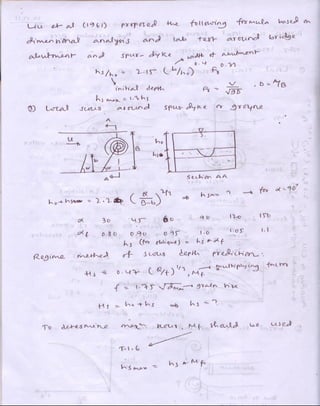 Liu et al (1961) proposed the following formula based on
dimensional analysis and lab test around bridge
abutment and spur-dyke
width of abutment
hs/ho = 2.15 (b/ho)^0.4 Fr^0.33
initial depth
Fr = V/√gD , D = A/B
hs max = 1.3 hs
Local scour around spur dyke or groyne
A
U
b
B
A
ho
hs
Section AA
= 2.2 ( /B-b)^2/3 ⇒ hs = ? → for α = 90°
α 30 45 60 90 120 150
αf 0.80 0.90 0.95 1.0 1.05 1.1
hs (for oblique) = hs * αf
Regime method of scour depth prediction:-
Hs = 0.47 (Q/f)^1/3 , Mf → multiplying factor
f = 1.75 √dmm → grain size
Hs = ho + hs ⇒ hs = ?
To determine max^m scour, Mf should be used
T-1.6
hs max = hs * Mf